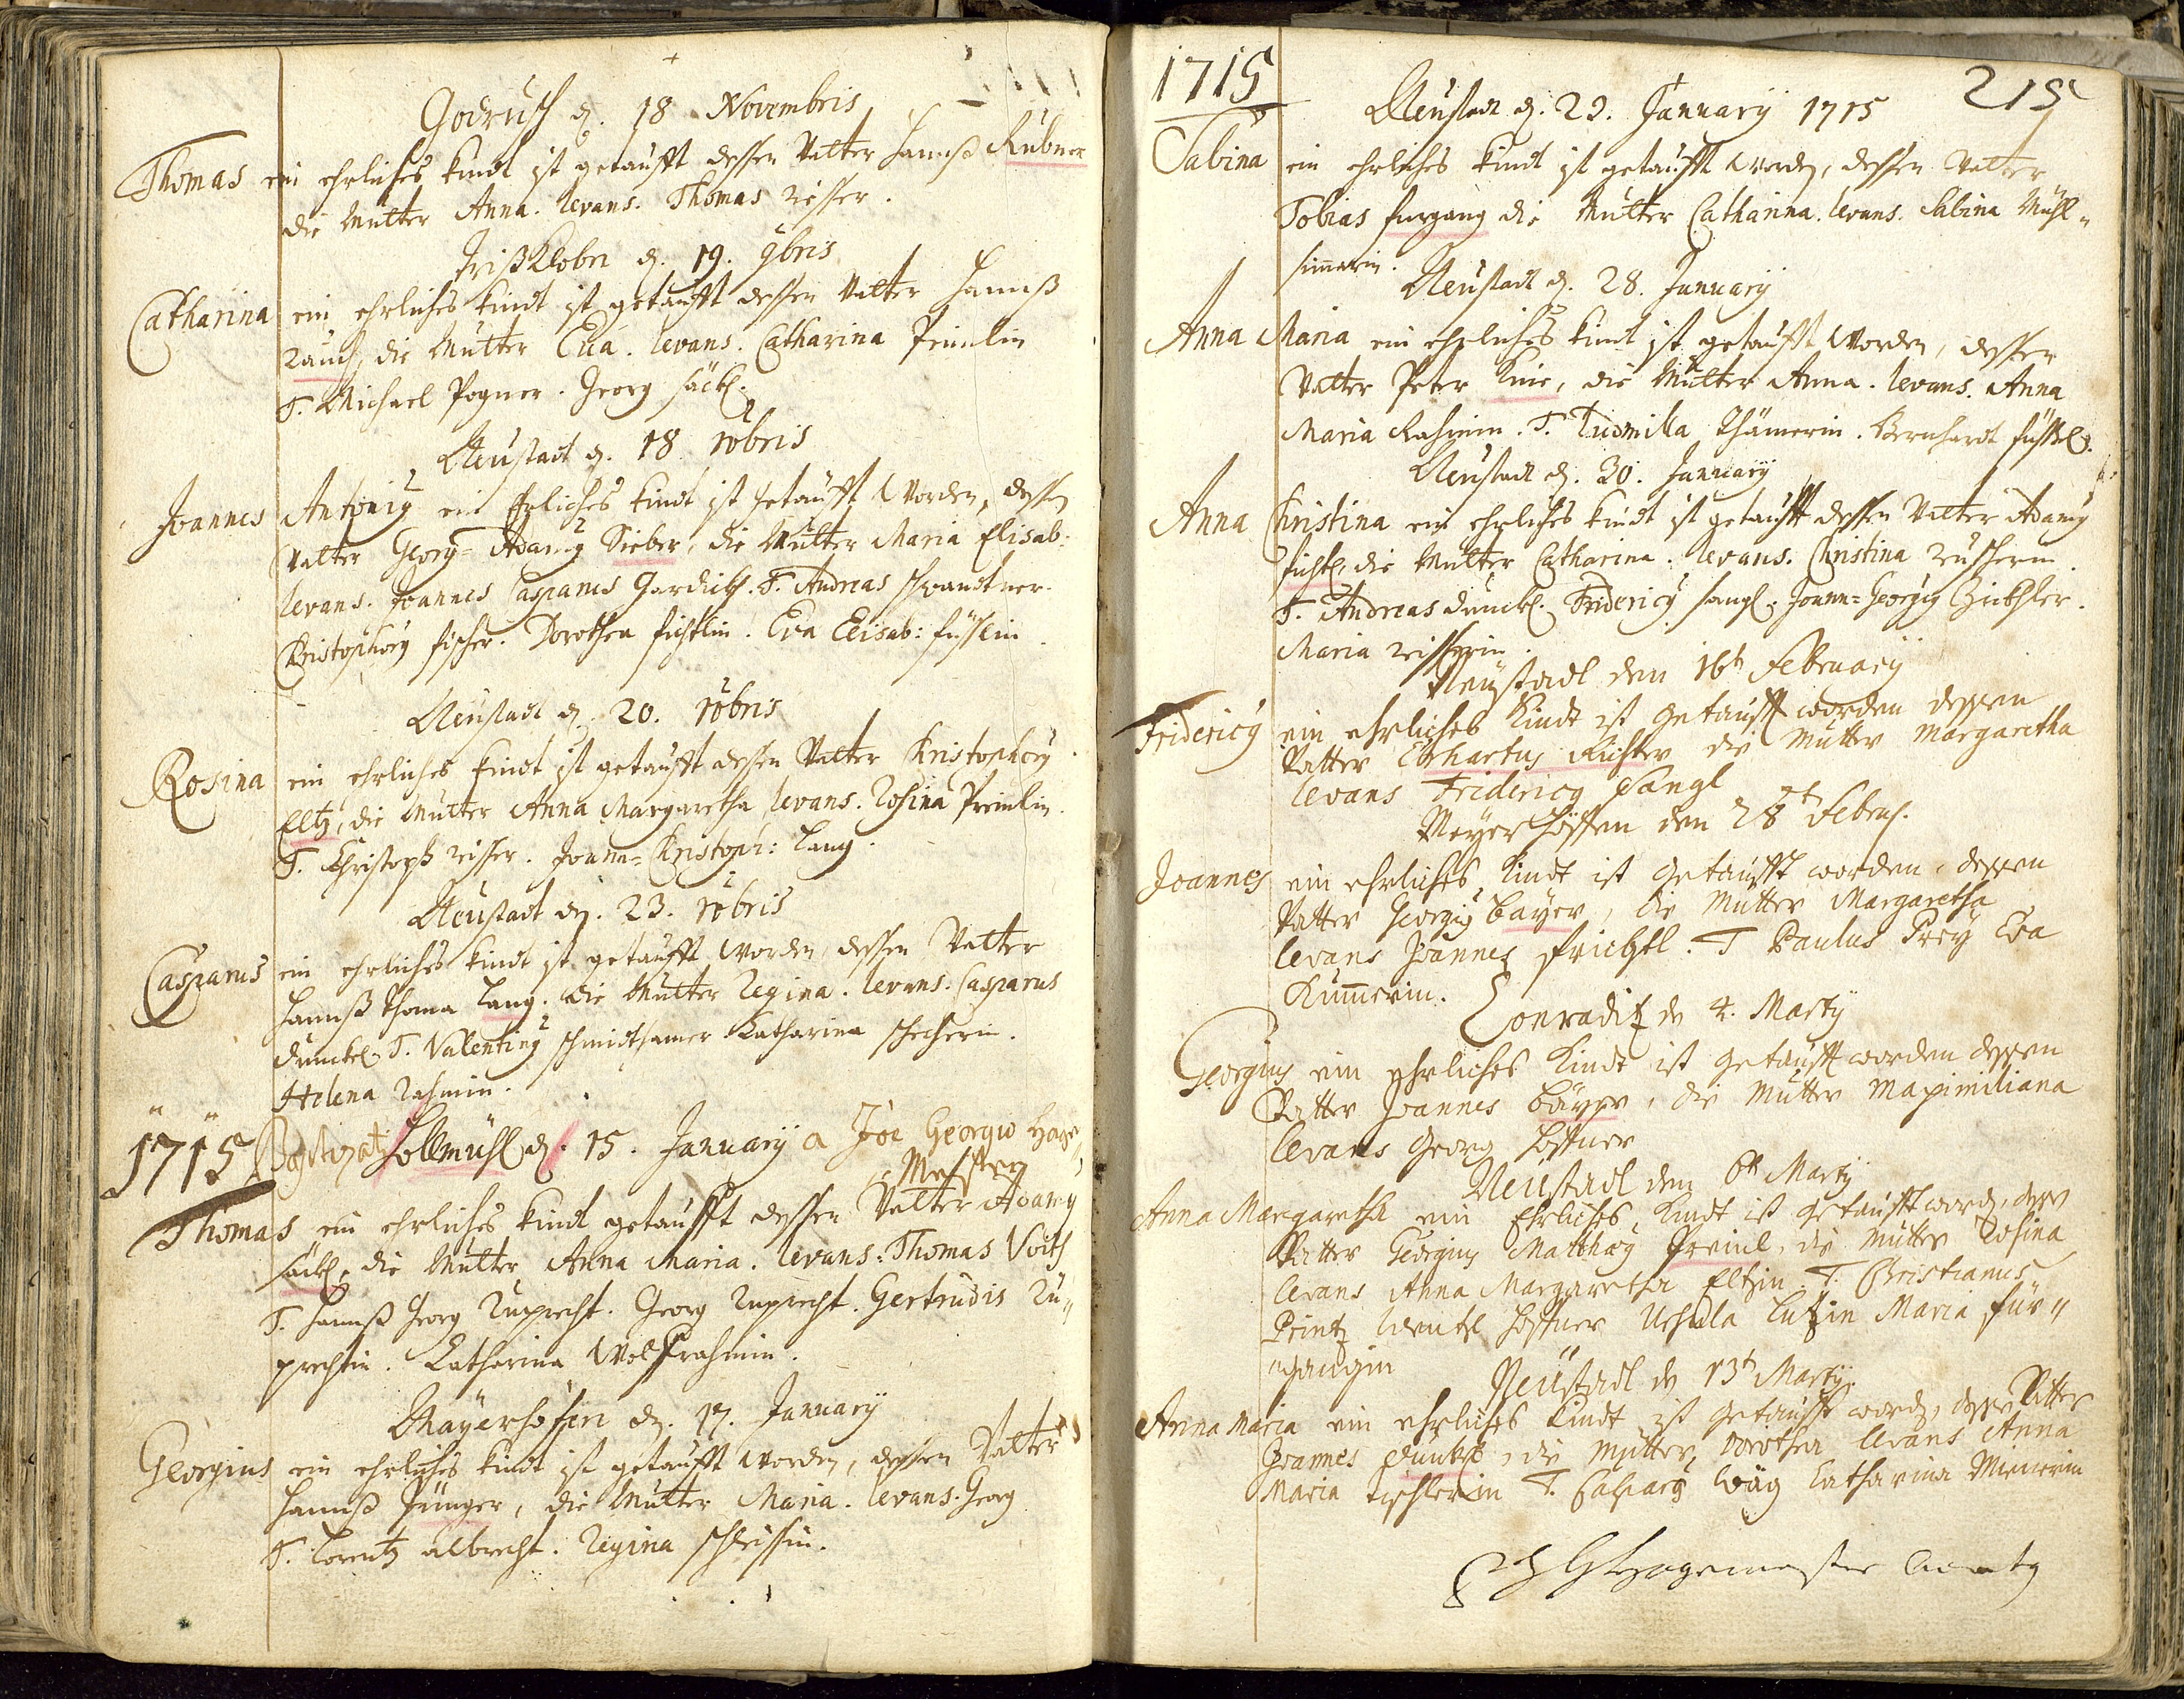 Godrusch d. 18. Novembris
Thomas ein ehrliches kindt ist getaufft dessen Vatter Hannß Rubner
die Mutter Anna. levans. Thomas risser.
d. 19. 9bris
Catharina ein ehrliches kindt ist getaufft dessen Vatter Hannß
Rauch, die Mutter Eua. levans. Catharina Preinlin
T. Michael Pogner. Georg säckl.
Neustadt d. 18 10bris
Joannes Antonig ein Ehrliches kindt ist getaufft Worden, dessen
Vatter Georg=Adamg Sieber, die Mutter Maria Elisab:
levans. Joannes Casparus T. Andreas schwandtner.
Christophorg fischer. Dorothea fichtlin. Eva Elisab:
Neustadt d. 20. 10bris
Rosina ein ehrliches kindt ist getaufft dessen Vatter Kristophorg
Eltz, die Mutter Anna Margaretha, levans. Rosina Preinlin.
T. Christoph risser. Joann=Christoph: Lang.
Neustadt den. 23. 10bris
Casparus ein ehrliches kindt ist getaufft Worden, dessen Vatter
Hannß Thoma Lang. die Mutter Regina. levans. Casparus
dunckl. T. Valenting Catharina
Helena
1715 Baptizat Hollmühl d. 15. January a Joe Georgio Hage
Messter
Thomas ein ehrliches kindt getaufft dessen Vatter Adamg
säckl, die Mutter Anna Maria. levans: Thomas Voith
T. Hannß Georg Ruprecht. Georg Ruprecht. Gertrudis Ru„
prechtin. Catharina Wolfframin.
Mayerhöfen d. 17. January
Georgius ein ehrliches kindt ist getaufft worden, dessen Vatter
Hannß Junger, die Mutter Maria. levans. Georg
T. Lorentz albrecht. Regina
1715
215
Neustadt d. 23. January 1715
Sabina ein ehrliches kindt ist getaufft Worden, dessen Vatter
Tobias furgang die Mutter Catharina. levans. Sabina Mühl„
Neustadt d. 28. January
Anna Maria ein ehrliches kindt ist getaufft Worden, dessen
Vatter Peter Knie, die Mutter Anna. levans. Anna
Maria T. Ludmilla Bernhardt
Neustadt d. 30. January
Anna Christina ein ehrliches kindt ist getaufft dessen Vatter Adamg
fichtl, die Mutter Catharina. levans. Christina
T. Andreas dunckl. Fridericg sangl. Joann=Georgig
Maria risserin.
Neustadl den 16t February
Fridericg ein ehrliches Kindt ist getaufft worden dessen
Vatter Ekhartus Richter die Mutter Margaretha
levans Fridericg Sangl
Meyerhöffen den 28t Febru.
Joannes ein ehrliches Kindt ist getaufft worden, dessen
Vatter Georgig Bayer, die Mutter Margaretha
levans Joannes T Paulus Prey Eva
Kummerin.
Conraditz de 4. Marty
Georgius ein ehrliches Kindt ist getaufft worden dessen
Vatter Joannes Bayer, die Mutter Maximiliana
levans Georg Höffner
Neustadl den 6t Marty
Anna Margaretha ein Ehrliches Kindt ist getaufft word, dessen
Vatter Georgius Matthæg Preinl, die Mutter Rosina
levans Anna Margaretha Eltzin. T. Christianus
Printz Höffner Ursula Lutzin Maria für„
„gangin
Neustadl de 13t Marty
Anna Maria ein ehrliches Kindt ist getaufft word, dessen Vatter
Joannes dunkl, die Mutter Dorothea levans Anna
Maria T. Casparg Catharina